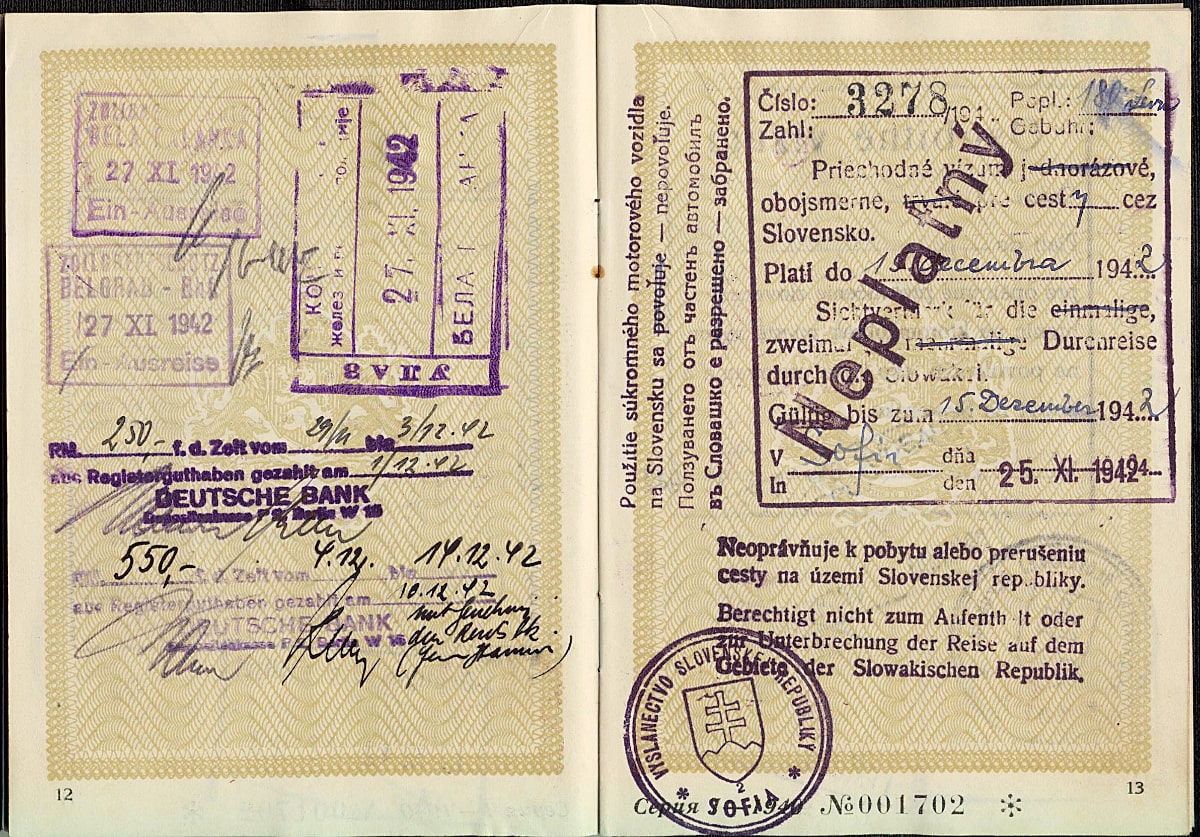 27 XI 1942
Ein-Ausreise
BELGRAD - Bhf
27 XI 1942
Ein-Ausreise
желез
27. XI. 1942
БЕЛА
УЛАЗ
RM. 250,- f. d. Zeit vom 29/11 bis 3/12.42
aus Registerguthaben gezahlt am 1/12.42
DEUTSCHE BANK
Depositenkasse Berlin W 15
RM. 550,- f. d. Zeit vom 4.12. bis 14.12.42
aus Registerguthaben gezahlt am 10.12.42
DEUTSCHE BANK
Depositenkasse Berlin W 15
12
Použitie súkromného motorového vozidla
na Slovensku sa povoľuje — nepovoľuje.
Ползуването отъ частенъ автомобилъ
въ Словашко е разрешено — забранено.
Číslo: 3278/194 Popl.: 180 Leva
Zahl: Gebühr:
Priechodné vízum jednorázové,
obojsmerne, pre cesty cez
Slovensko.
Platí do 15. Decembra 1942
Sichtvermerk für die einmalige,
zweimalige Durchreise
durch die Slowakei.
Gültig bis zum 15. Dezember 1942
V Sofii dňa
In den 25. XI. 1942
Neplatný
Neoprávňuje k pobytu alebo prerušeniu
cesty na území Slovenskej republiky.
Berechtigt nicht zum Aufenthalt oder
zur Unterbrechung der Reise auf dem
Gebiete der Slowakischen Republik.
VYSLANECTVO SLOVENSKEJ REPUBLIKY
2
* SOFIA *
Серия 1940 №001702 *
13